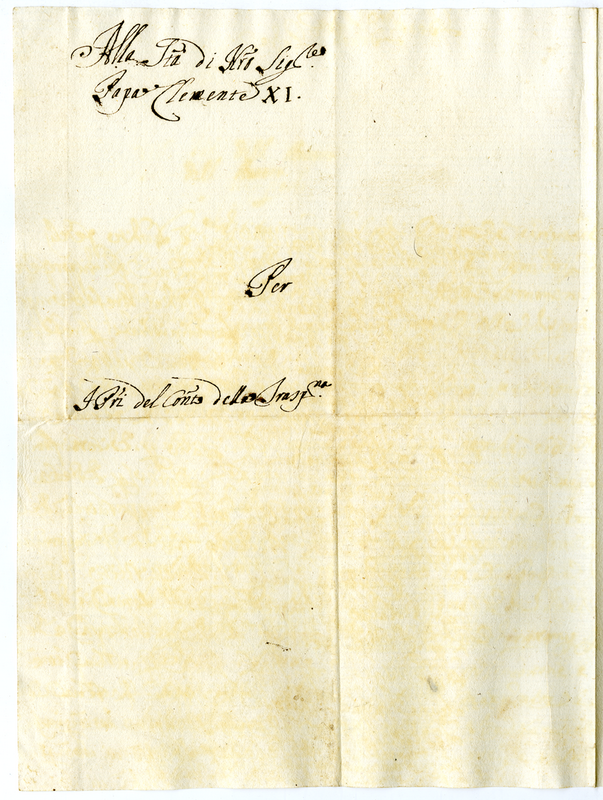 Alla Stà di Nro Sigre
Papa Clemente XI.
Per
I Pri del Conto della Traspna